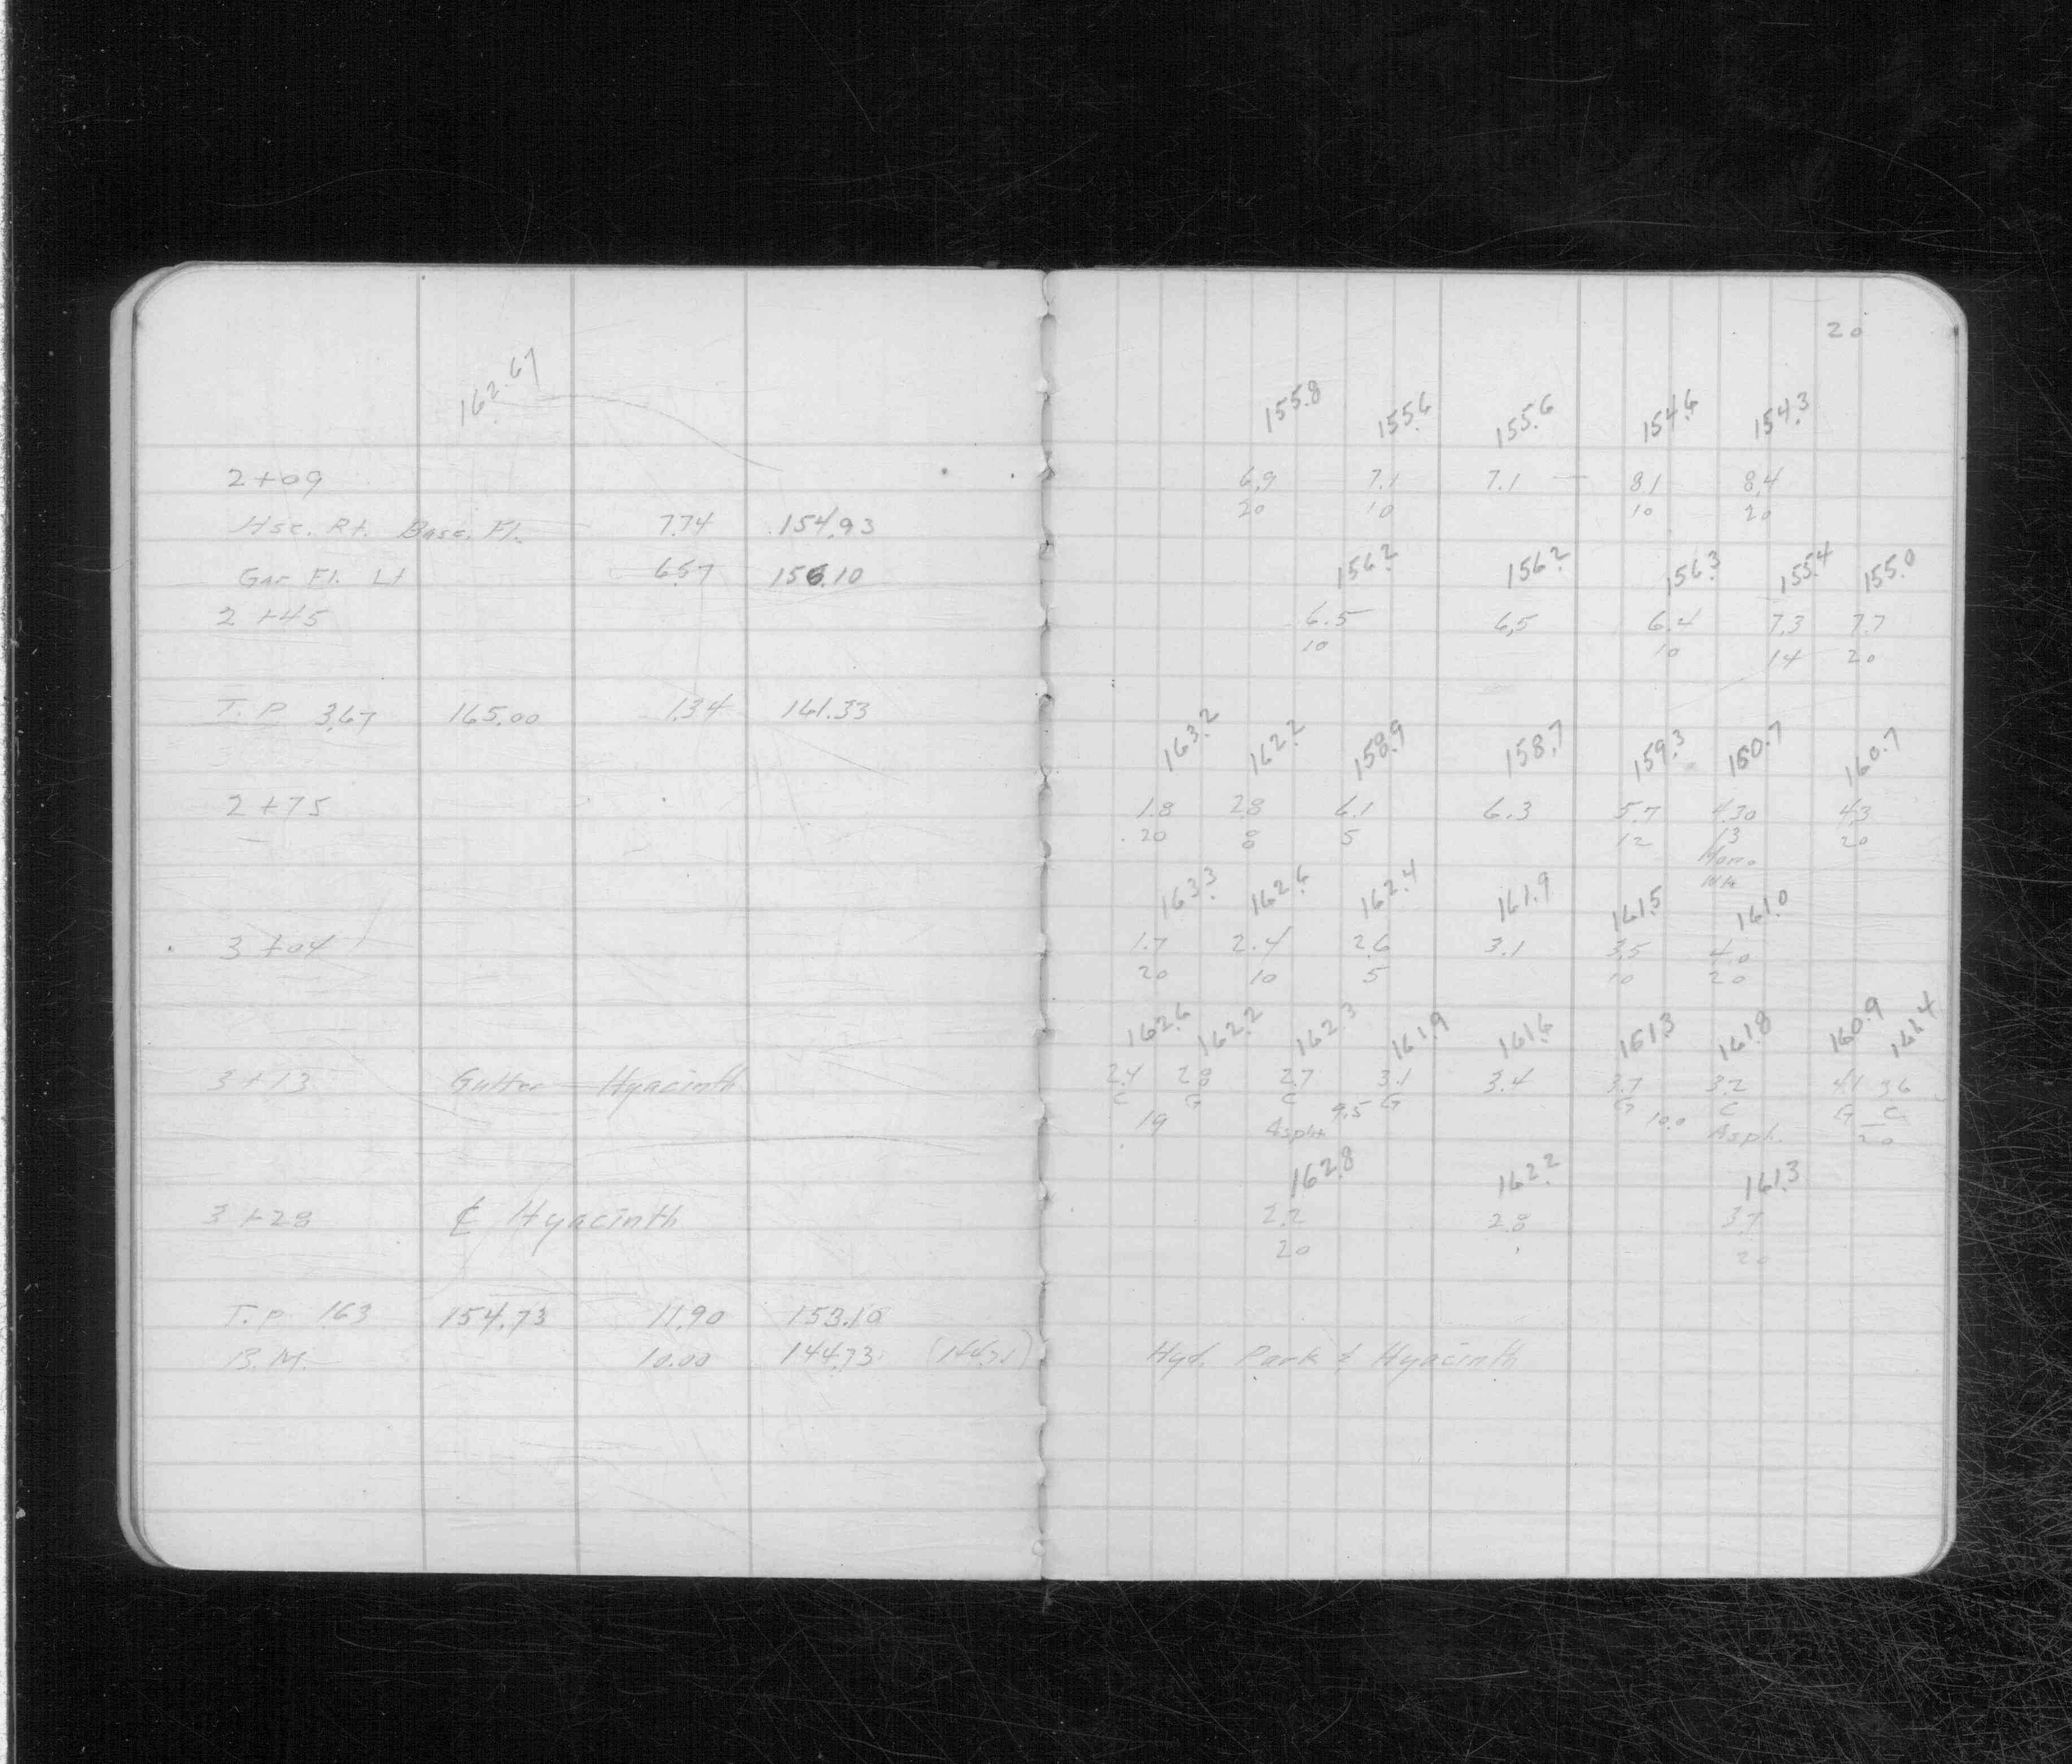 20
162.67
155.8 155.6 155.6 154.6 154.3
2+09 6.9 7.1 7.1 8.1 8.4
20 10 10 20
Hse. Rt. Base. Fl. 7.74 154.93
Gar Fl. Lt 6.57 156.10
156.2 156.2 156.3 155.4 155.0
2+45 6.5 6.5 6.4 7.3 7.7
10 10 14 20
T.P 3.67 165.00 1.34 161.33
163.2 162.2 158.9 158.7 159.3 160.7 160.7
2+75 1.8 2.8 6.1 6.3 5.7 4.30 4.3
20 8 5 12 13 20
163.3 162.6 162.4 161.9 161.5 161.0
3+04 1.7 2.4 2.6 3.1 3.5 4.0
20 10 5 10 20
162.6 162.2 162.3 161.9 161.6 161.3 161.8 160.9 161.4
3+13 Gutter Hyacinth 2.4 2.8 2.7 3.1 3.4 3.7 3.2 4.1 3.6
C G C G G C G C
19 Asph. 9.5 10.0 Asph. 20
162.8 162.2 161.3
3+28 ℄ Hyacinth 2.2 2.8 3.7
20 20
T.P. 1.63 154.73 11.90 153.10
B.M. 10.00 144.73 Hyd. Park & Hyacinth